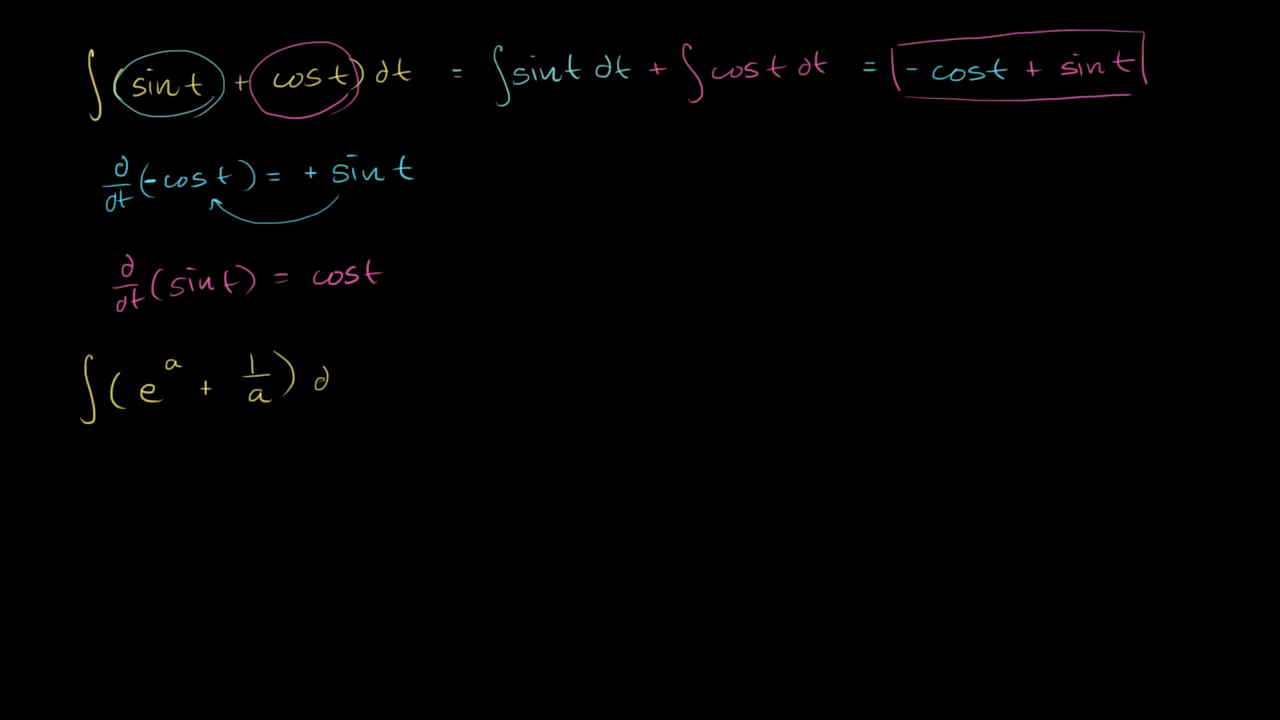 ∫(sin t + cos t) dt = ∫sin t dt + ∫cos t dt = - cos t + sin t
d/dt(-cos t) = + sin t
d/dt(sin t) = cos t
∫(e^a + 1/a) d